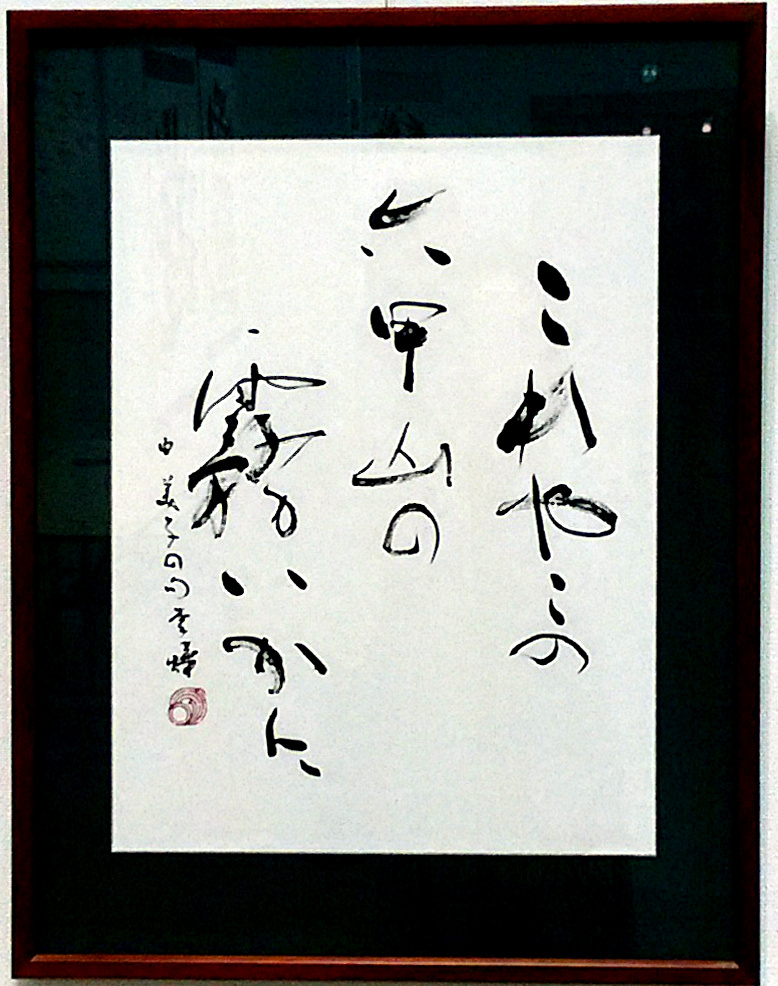 これやこの
六甲山の
霧いかに
由美子の句